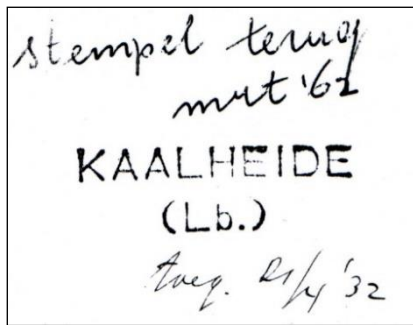 stempel terug
mrt '62
KAALHEIDE
(Lb.)
toeg. /4 '32